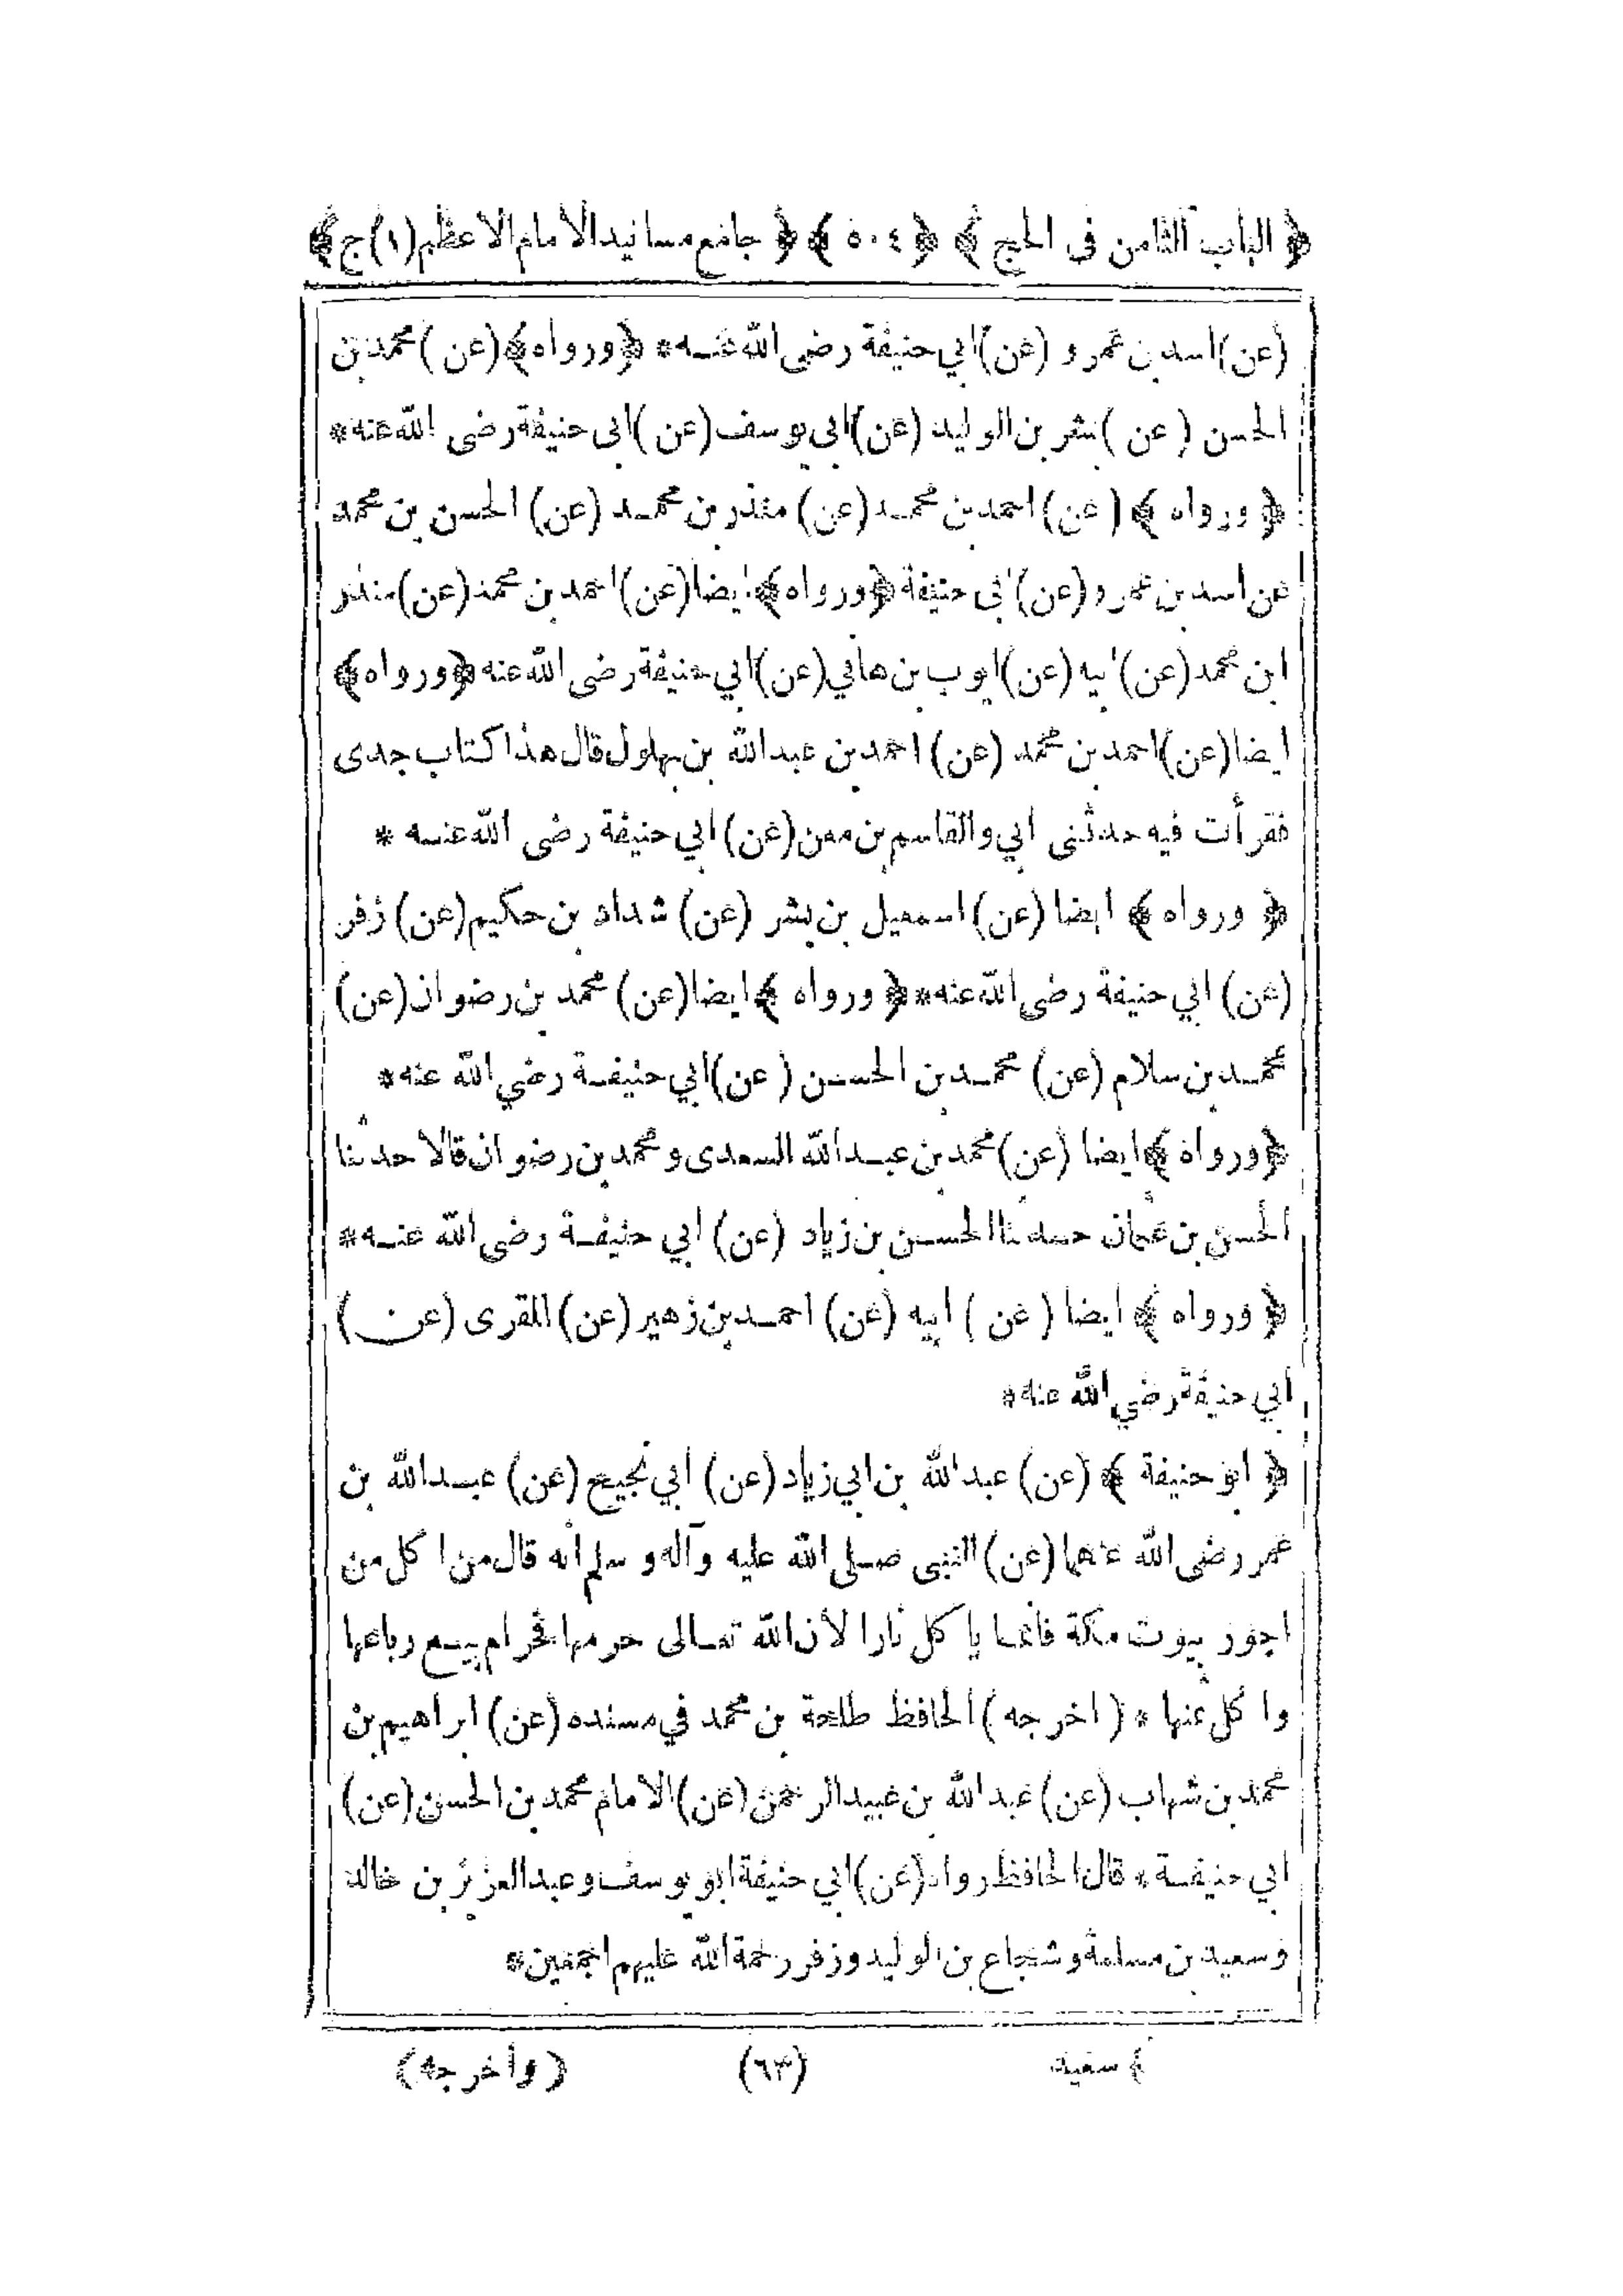 ﴿ الباب الثامن فى الحج ﴾ ﴿ ٥٠٤ ﴾ ﴿ جامع مسانيد الامام الاعظم (١) ج ﴾
(عن) اسد بن عمرو (عن) ابي حنيفة رضى الله عنه * ﴿ ورواه ﴾ (عن) محمد بن
الحسن (عن) بشر بن الوليد (عن) ابي يوسف (عن) ابى حنيفة رضى الله عنه *
﴿ ورواه ﴾ (عن) احمد بن محمد (عن) منذر بن محمد (عن) الحسن بن محمد
عن اسد بن عمرو (عن) ابى حنيفة ﴿ ورواه ﴾ ايضا (عن) احمد بن محمد (عن) منذر
ابن محمد (عن) ابيه (عن) ايوب بن هاني (عن) ابي حنيفة رضى الله عنه ﴿ ورواه ﴾
ايضا (عن) احمد بن محمد (عن) احمد بن عبد الله بن بهلول قال هذا كتاب جدى
فقرأت فيه حدثنى ابي والقاسم بن معن (عن) ابي حنيفة رضى الله عنه *
﴿ ورواه ﴾ ايضا (عن) اسمعيل بن بشر (عن) شداد بن حكيم (عن) زفر
(عن) ابي حنيفة رضى الله عنه * ﴿ ورواه ﴾ ايضا (عن) محمد بن رضوان (عن)
محمد بن سلام (عن) محمد بن الحسن (عن) ابي حنيفة رضي الله عنه *
﴿ ورواه ﴾ ايضا (عن) محمد بن عبد الله السعدى ومحمد بن رضوان قالا حدثنا
الحسن بن عثمان حدثنا الحسن بن زياد (عن) ابي حنيفة رضى الله عنه *
﴿ ورواه ﴾ ايضا (عن) ابيه (عن) احمد بن زهير (عن) المقرى (عن)
ابي حنيفة رضي الله عنه *
﴿ ابو حنيفة ﴾ (عن) عبد الله بن ابي زياد (عن) ابي نجيح (عن) عبد الله بن
عمر رضى الله عنهما (عن) النبى صلى الله عليه وآله وسلم انه قال من اكل من
اجور بيوت مكة فانما يا كل نارا لأن الله تعالى حرمها فحرام بيع رباعها
وا كل ثمنها * (اخرجه) الحافظ طلحة بن محمد في مسنده (عن) ابراهيم بن
محمد بن شهاب (عن) عبد الله بن عبيد الرحمن (عن) الامام محمد بن الحسن (عن)
ابي حنيفة * قال الحافظ رواه (عن) ابي حنيفة ابو يوسف وعبد العزيز بن خالد
وسعيد بن مسلمة وشجاع بن الوليد وزفر رحمة الله عليهم اجمعين *
سعيد (٦٣) (وأخرجه)